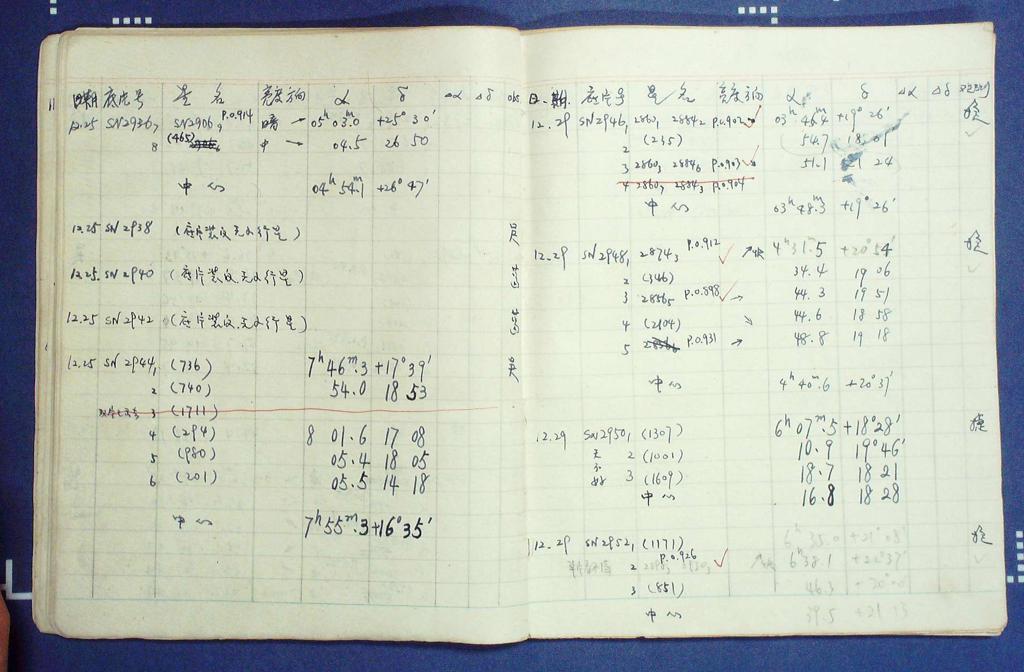 日期 底片号 星名 亮度方向 α δ Δα Δδ obs
12.25 SN2936, SN2906, P.0.914 暗→ 05ʰ 03.0ᵐ +25° 30′
8 (465) 中→ 04.5 26 50
中心 04ʰ 54ᵐ.1 +26° 47′
12.25 SN 2938 (底片装反,无小行星)
12.25 SN 2940 (底片装反,无小行星)
12.25 SN 2942 (底片装反,无小行星)
12.25 SN 2944, (736) 7ʰ 46ᵐ.3 +17° 39′
2 (740) 54.0 18 53
3 (1711)
4 (294) 8 01.6 17 08
5 (980) 05.4 18 05
6 (201) 05.5 14 18
中心 7ʰ 55ᵐ.3 +16° 35′
日.期. 底片号 星名 亮度方向 α δ Δα Δδ
12.29 SN2946, 2860, 2884₂ P.0.902 03ʰ 46.4ᵐ +19° 26′
2 (235) 54.7 18 01
3 2860, 2884₆ P.0.903 51.1 21 24
4 2860, 2884₃ P.0.904
中心 03ʰ 48.3ᵐ +19° 26′
12.29 SN2948, 2874₃ P.0.912 4ʰ 31ᵐ.5 +20° 54′
2 (346) 34.4 19 06
3 2856₅ P.0.898 → 44.3 19 51
4 (2104) 44.6 18 58
5 P.0.931 → 48.8 19 18
中心 4ʰ 40ᵐ.6 +20° 37′
12.29 SN2950, (1307) 6ʰ 07ᵐ.5 +18° 28′
2 (1001) 10.9 19° 46′
3 (1609) 18.7 18 21
中心 16.8 18 28
12.29 SN2952, (1171) 6ʰ 35.0 +21° 03′
2 P.0.926 6ʰ 38.1 +22° 37′
3 (851) 46.3
中心 39.5 +21 13